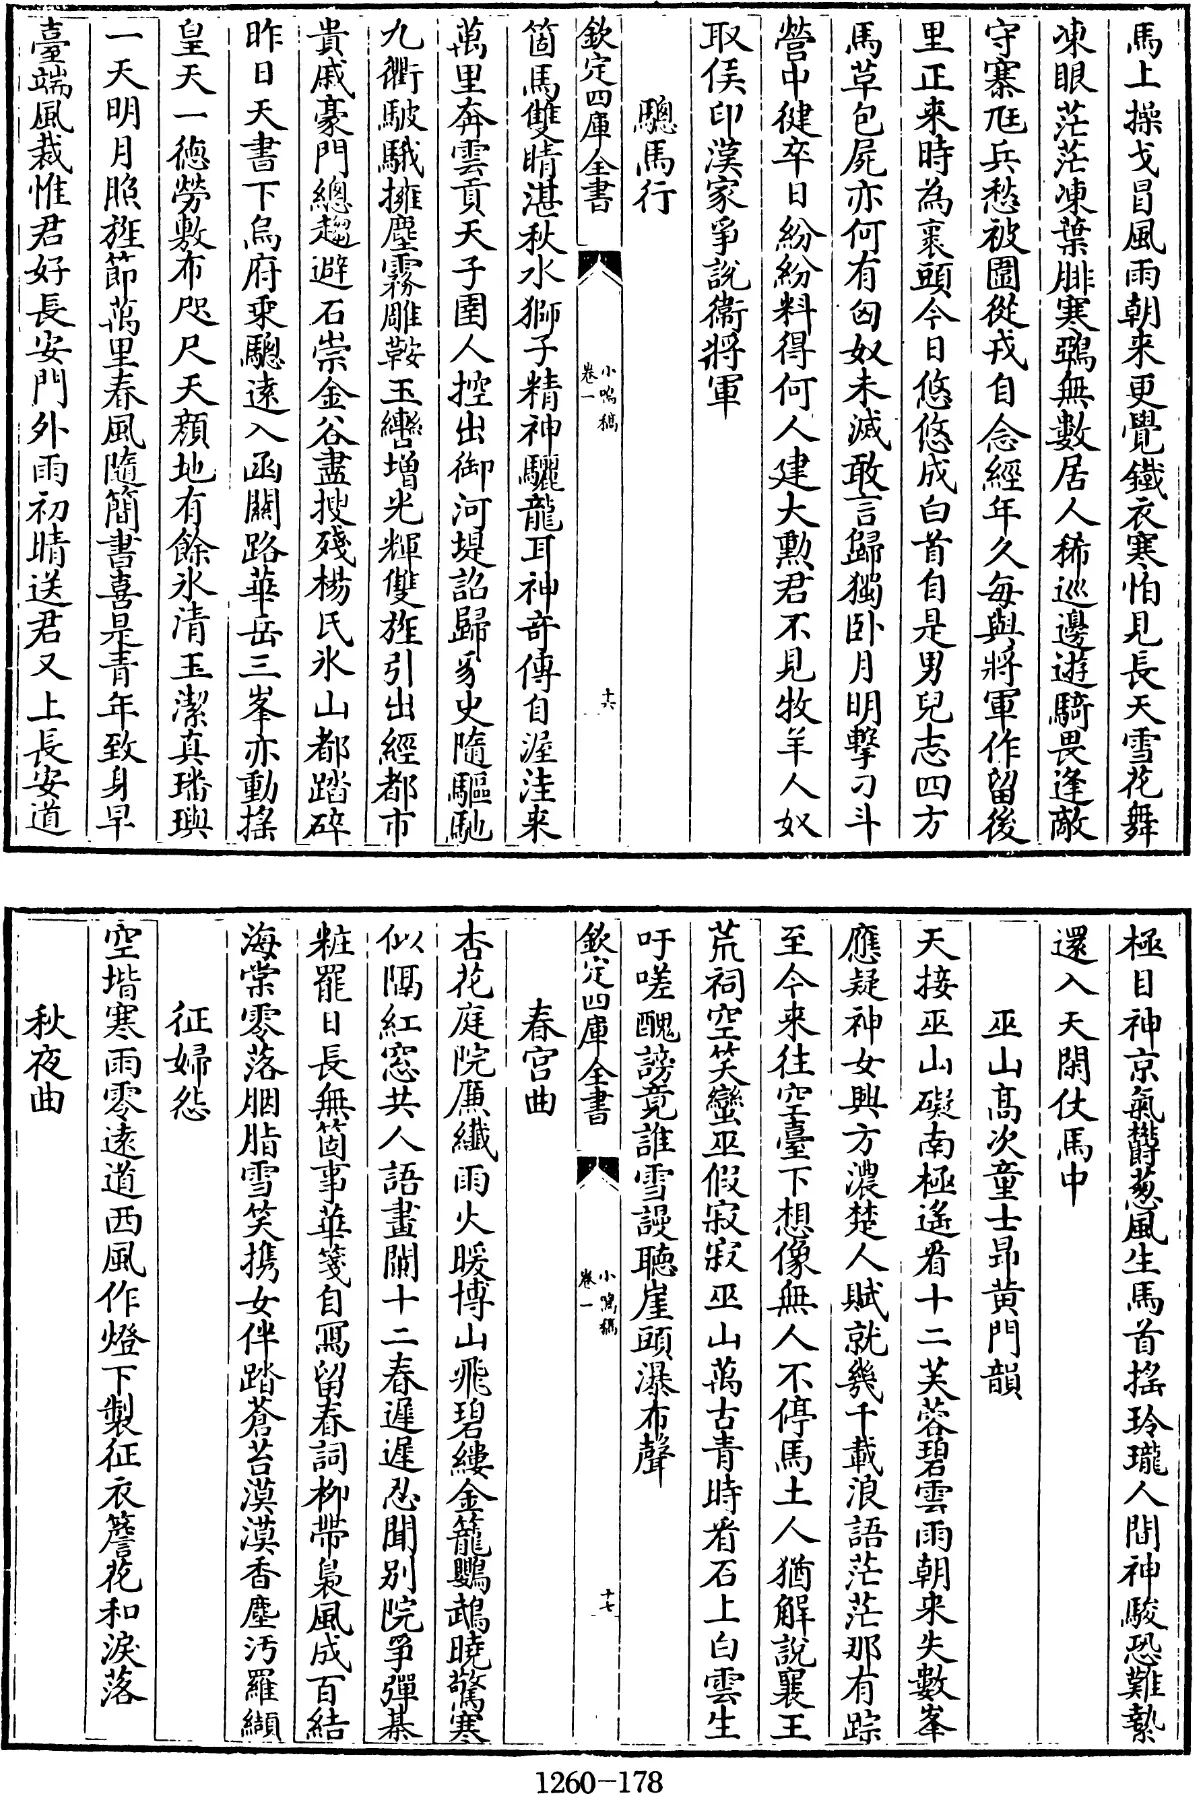 馬上操戈冒風雨朝来更覺鐵衣寒怕見長天雪花舞
凍眼茫茫凍葉腓寒鴉無數居人稀巡邊遊騎畏逢敵
守寨尫兵愁被圍從戎自念經年久每與將軍作留後
里正来時為褁頭今日悠悠成白首自是男兒志四方
馬草包屍亦何有匈奴未滅敢言歸獨卧月明擊刁斗
營中健卒日紛紛料得何人建大勲君不見牧羊人奴
取侯印漢家爭説衞將軍
驄馬行
欽定四庫全書
小鳴稿
卷一
十六
箇馬雙晴湛秋水獅子精神驪龍耳神竒傳自渥洼来
萬里奔雲貢天子圉人控出御河堤詔歸豸史隨驅馳
九衢駊騀擁塵霧雕鞍玉轡增光輝雙旌引出經都市
貴戚豪門總趨避石崇金谷盡搜殘楊氏氷山都踏碎
昨日天書下烏府乘驄逺入函關路華岳三峯亦動揺
皇天一徳勞敷布咫尺天顔地有餘氷清玉潔真璠璵
一天明月照旌節萬里春風隨簡書喜是青年致身早
臺端風裁惟君好長安門外雨初晴送君又上長安道
極目神京氣欝葱風生馬首揺玲瓏人間神駿恐難縶
還入天閑仗馬中
巫山髙次童士昻黄門韻
天接巫山礙南極遙看十二芙蓉碧雲雨朝来失數峯
應疑神女興方濃楚人賦就幾千載浪語茫茫那有踪
至今来往空臺下想像無人不停馬土人猶解説襄王
荒祠空笑蠻巫假寂寂巫山萬古青時看石上白雲生
吁嗟醜謗竟誰雪謾聽崖頭瀑布聲
欽定四庫全書
小鳴稿
卷一
十七
春宫曲
杏花庭院廉纖雨火暖博山飛碧縷金籠鸚鵡曉驚寒
似隔紅窓共人語畫闌十二春遲遲忍聞别院爭彈棊
粧罷日長無箇事華箋自寫留春詞柳帶裊風成百結
海棠零落胭脂雪笑携女伴踏蒼苔漠漠香塵汚羅纈
征婦怨
空堦寒雨零逺道西風作燈下製征衣簷花和淚落
秋夜曲
1260-178